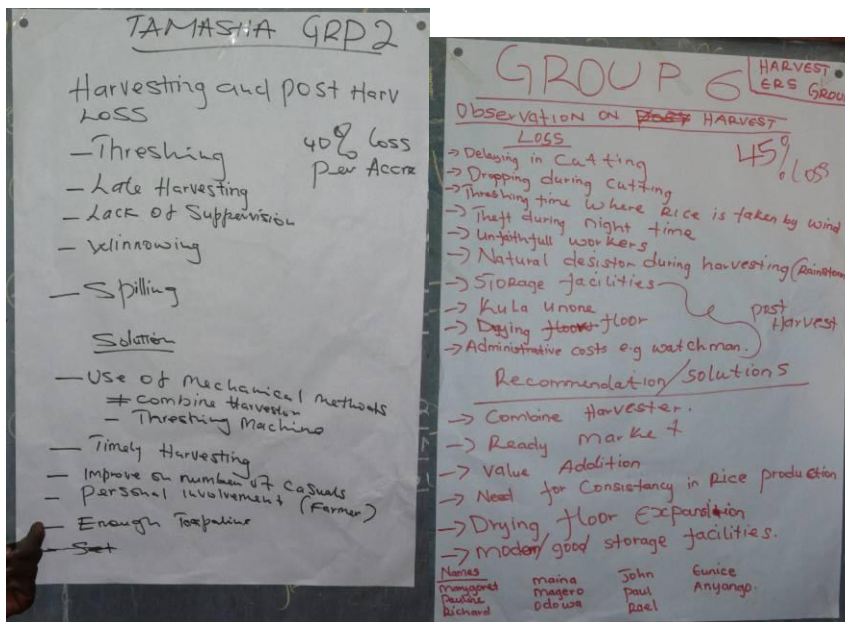 TAMASHA GRP 2
Harvesting and post Harv
LOSS
40% Loss
per Accre
- Threshing
- Late Harvesting
- Lack of Suppervision
- Winnowing
- Spilling
Solution
- Use of Mechanical Methods
combine Harvestor
- Threshing Machine
- Timely Harvesting
- Improve on number of Casuals
- Personal involvement (Farmer)
- Enough Tarpaline
GROUP 6
HARVEST
ERS GROUP
Observation ON POST HARVEST
LOSS
45% Loss
→ Delaying in Cutting
→ Dropping during cutting
→ Threshing time where Rice is taken by wind
→ Theft during night time
→ Unfaithfull workers
→ Natural desistor during harvesting (Rainstorm
→ Storage facilities
→ Kula Unone
→ Drying floor floor
→ Administrative costs e.g watchman.
post
Harvest
Recommendation/Solutions
→ Combine Harvester.
→ Ready market
→ Value Addition
→ Need for Consistancy in Rice production
→ Drying floor Expansion
→ Modern/good storage facilities.
Names
Margaret maina John Eunice
Pauline magero paul Anyango.
Richard Odowa Rael